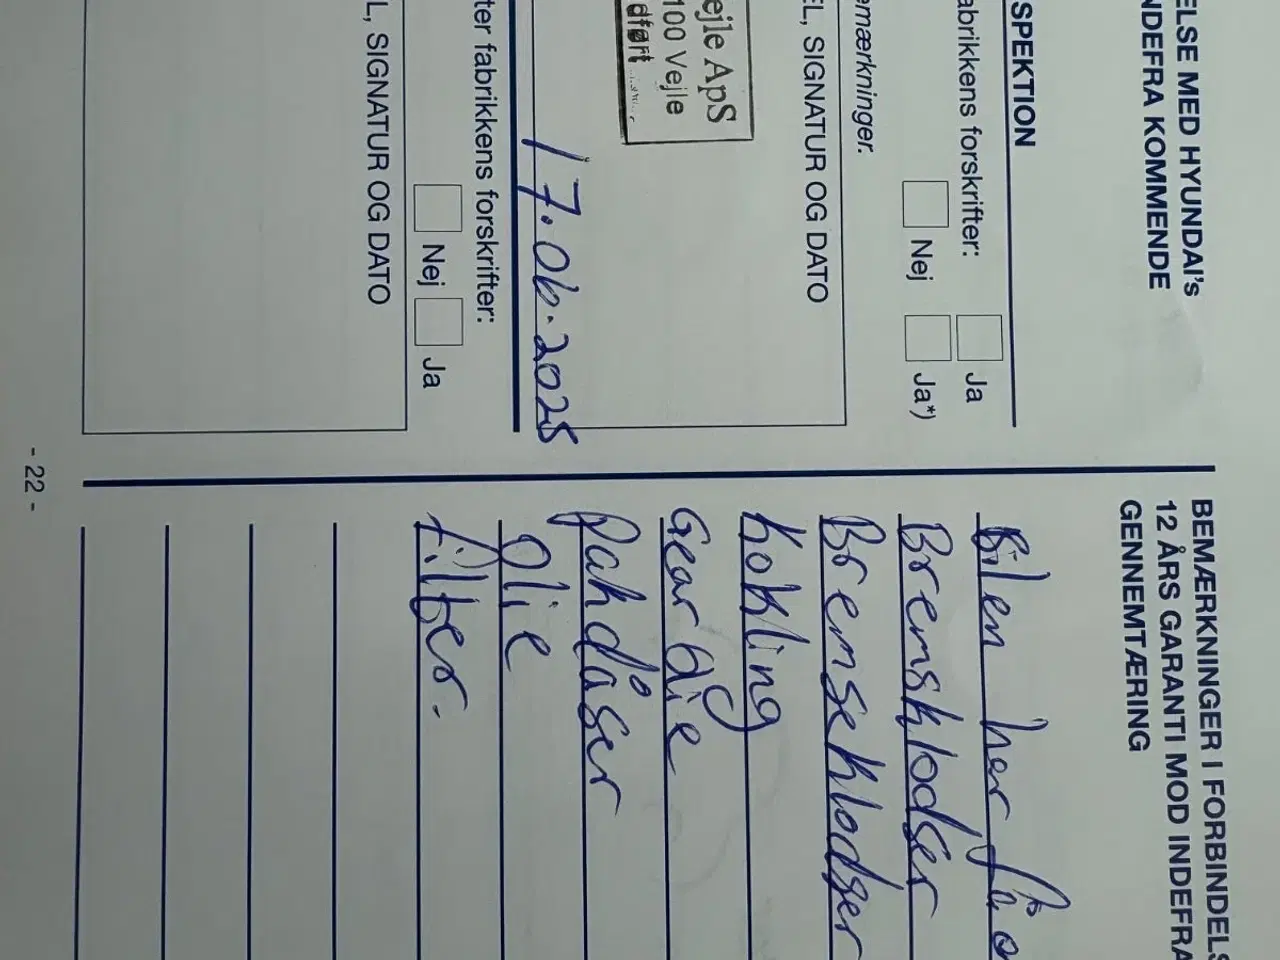 ELSE MED HYUNDAI's
NDEFRA KOMMENDE
SPEKTION
abrikkens forskrifter:
Ja
Nej
Ja*)
emærkninger.
EL, SIGNATUR OG DATO
ejle ApS
100 Vejle
dført
17.06.2025
ter fabrikkens forskrifter:
Nej
Ja
L, SIGNATUR OG DATO
- 22 -
BEMÆRKNINGER I FORBINDELS
12 ÅRS GARANTI MOD INDEFRA
GENNEMTÆRING
Bilen har få
Bremsklodser
Bremseklodser
Kokling
Gear Olie
Pakdåser
Olie
filter.